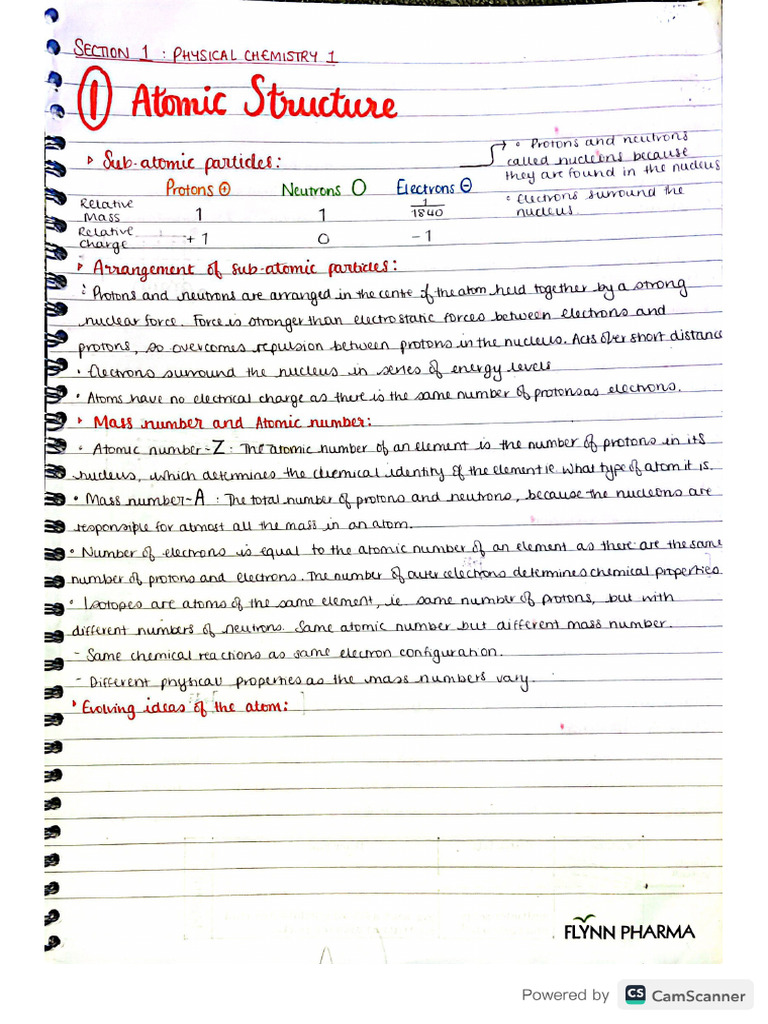 SECTION 1 : PHYSICAL CHEMISTRY 1
① Atomic Structure
Sub-atomic particles:
Protons ⊕ Neutrons O Electrons ⊖
Relative Mass 1 1 1/1840
Relative charge +1 0 -1
→ • Protons and neutrons
called nucleons because
they are found in the nucleus
• Electrons surround the
nucleus.
Arrangement of sub-atomic particles:
• Protons and neutrons are arranged in the centre of the atom held together by a strong
nuclear force. Force is stronger than electrostatic forces between electrons and
protons, so overcomes repulsion between protons in the nucleus. Acts over short distance
• Electrons surround the nucleus in series of energy levels
• Atoms have no electrical charge as there is the same number of protons as electrons.
Mass number and Atomic number:
• Atomic number - Z : The atomic number of an element is the number of protons in its
nucleus, which determines the chemical identity of the element ie. what type of atom it is.
• Mass number - A : The total number of protons and neutrons, because the nucleons are
responsible for almost all the mass in an atom.
• Number of electrons is equal to the atomic number of an element as there are the same
number of protons and electrons. The number of outer electrons determines chemical properties
• Isotopes are atoms of the same element, ie. same number of protons, but with
different numbers of neutrons. Same atomic number but different mass number.
- Same chemical reactions as same electron configuration.
- Different physical properties as the mass numbers vary.
Evolving ideas of the atom:
FLYNN PHARMA
Powered by CS CamScanner